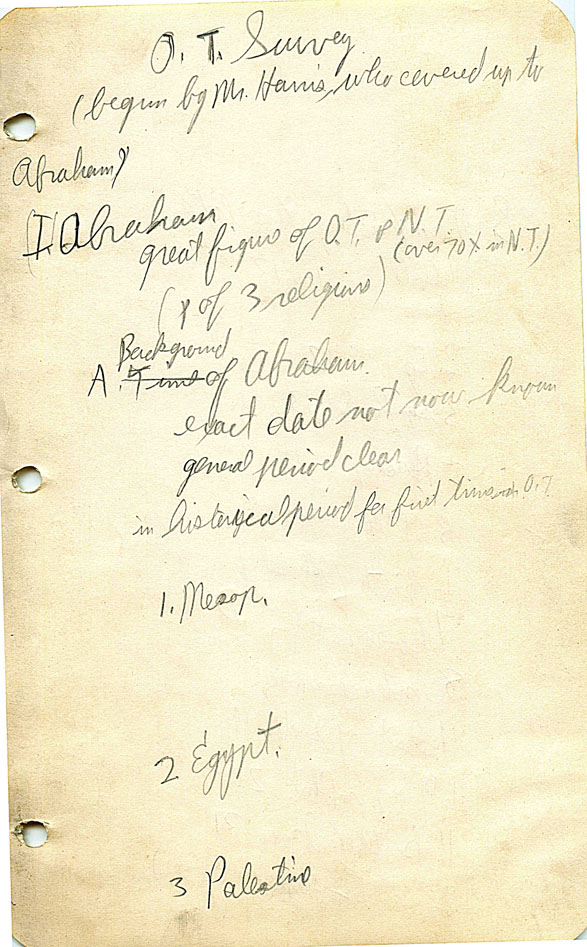 O. T. Survey
(begun by Mr. Harris, who covered up to
Abraham)
(I. Abraham
great figure of O.T. & N.T.
(over 70 X in N.T.)
(& of 3 religions)
Background
A. Time of Abraham.
exact date not now known
general period clear
in historical period for first time in O.T.
1. Mesop.
2 Egypt.
3 Palestine